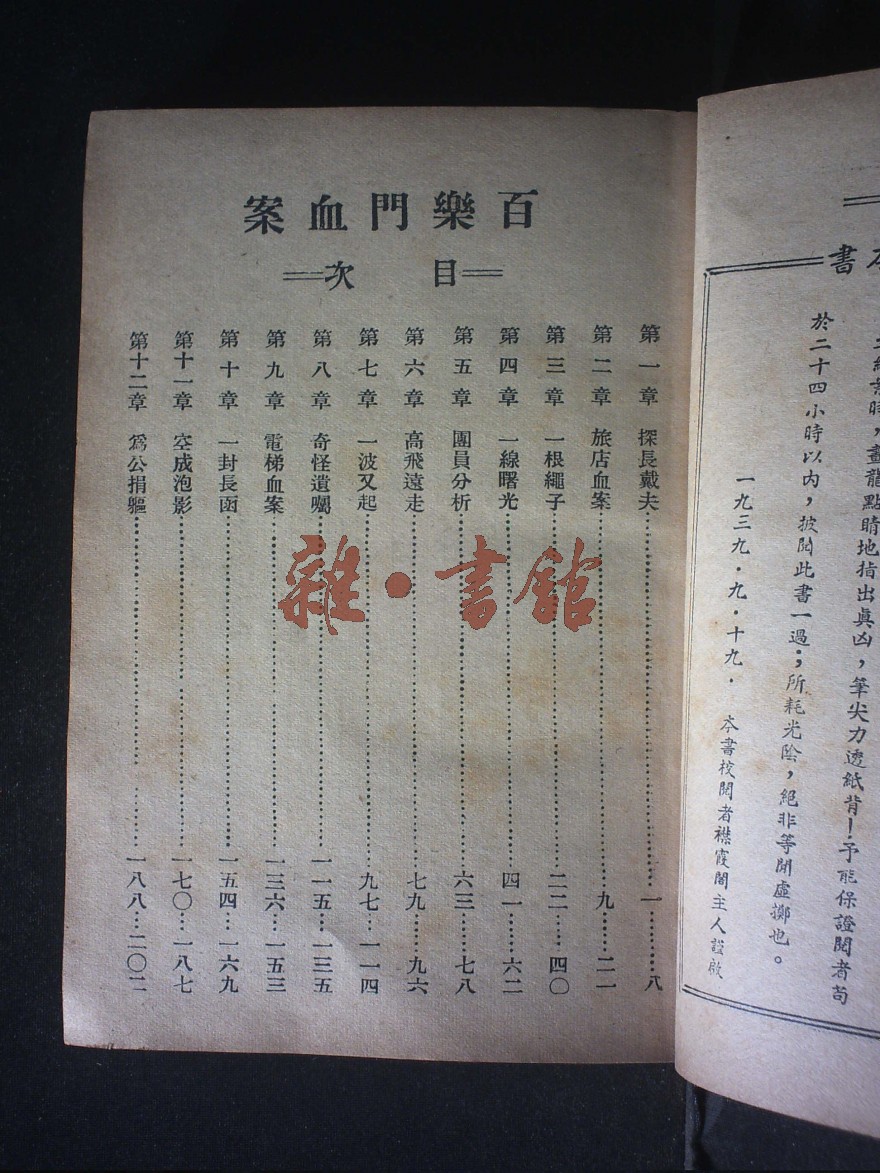 百樂門血案
目次
第一章 探長戴夫……一……八
第二章 旅店血案……九……二一
第三章 一根繩子……二二……四〇
第四章 一線曙光……四一……六二
第五章 團員分析……六三……七八
第六章 高飛遠走……七九……九六
第七章 一波又起……九七……一一四
第八章 奇怪遺囑……一一五……一三五
第九章 電梯血案……一三六……一五三
第十章 一封長函……一五四……一六九
第十一章 空成泡影……一七〇……一八七
第十二章 爲公捐軀……一八八……二〇二
雜·書館
本書
時,畫龍點睛地指出眞凶,筆尖力透紙背!予能保證閱者苟
於二十四小時以內,披閱此書一過;所耗光陰,絕非等閒虛擲也。
一九三九·九·十九· 本書校閱者襟霞閣主人謹啟